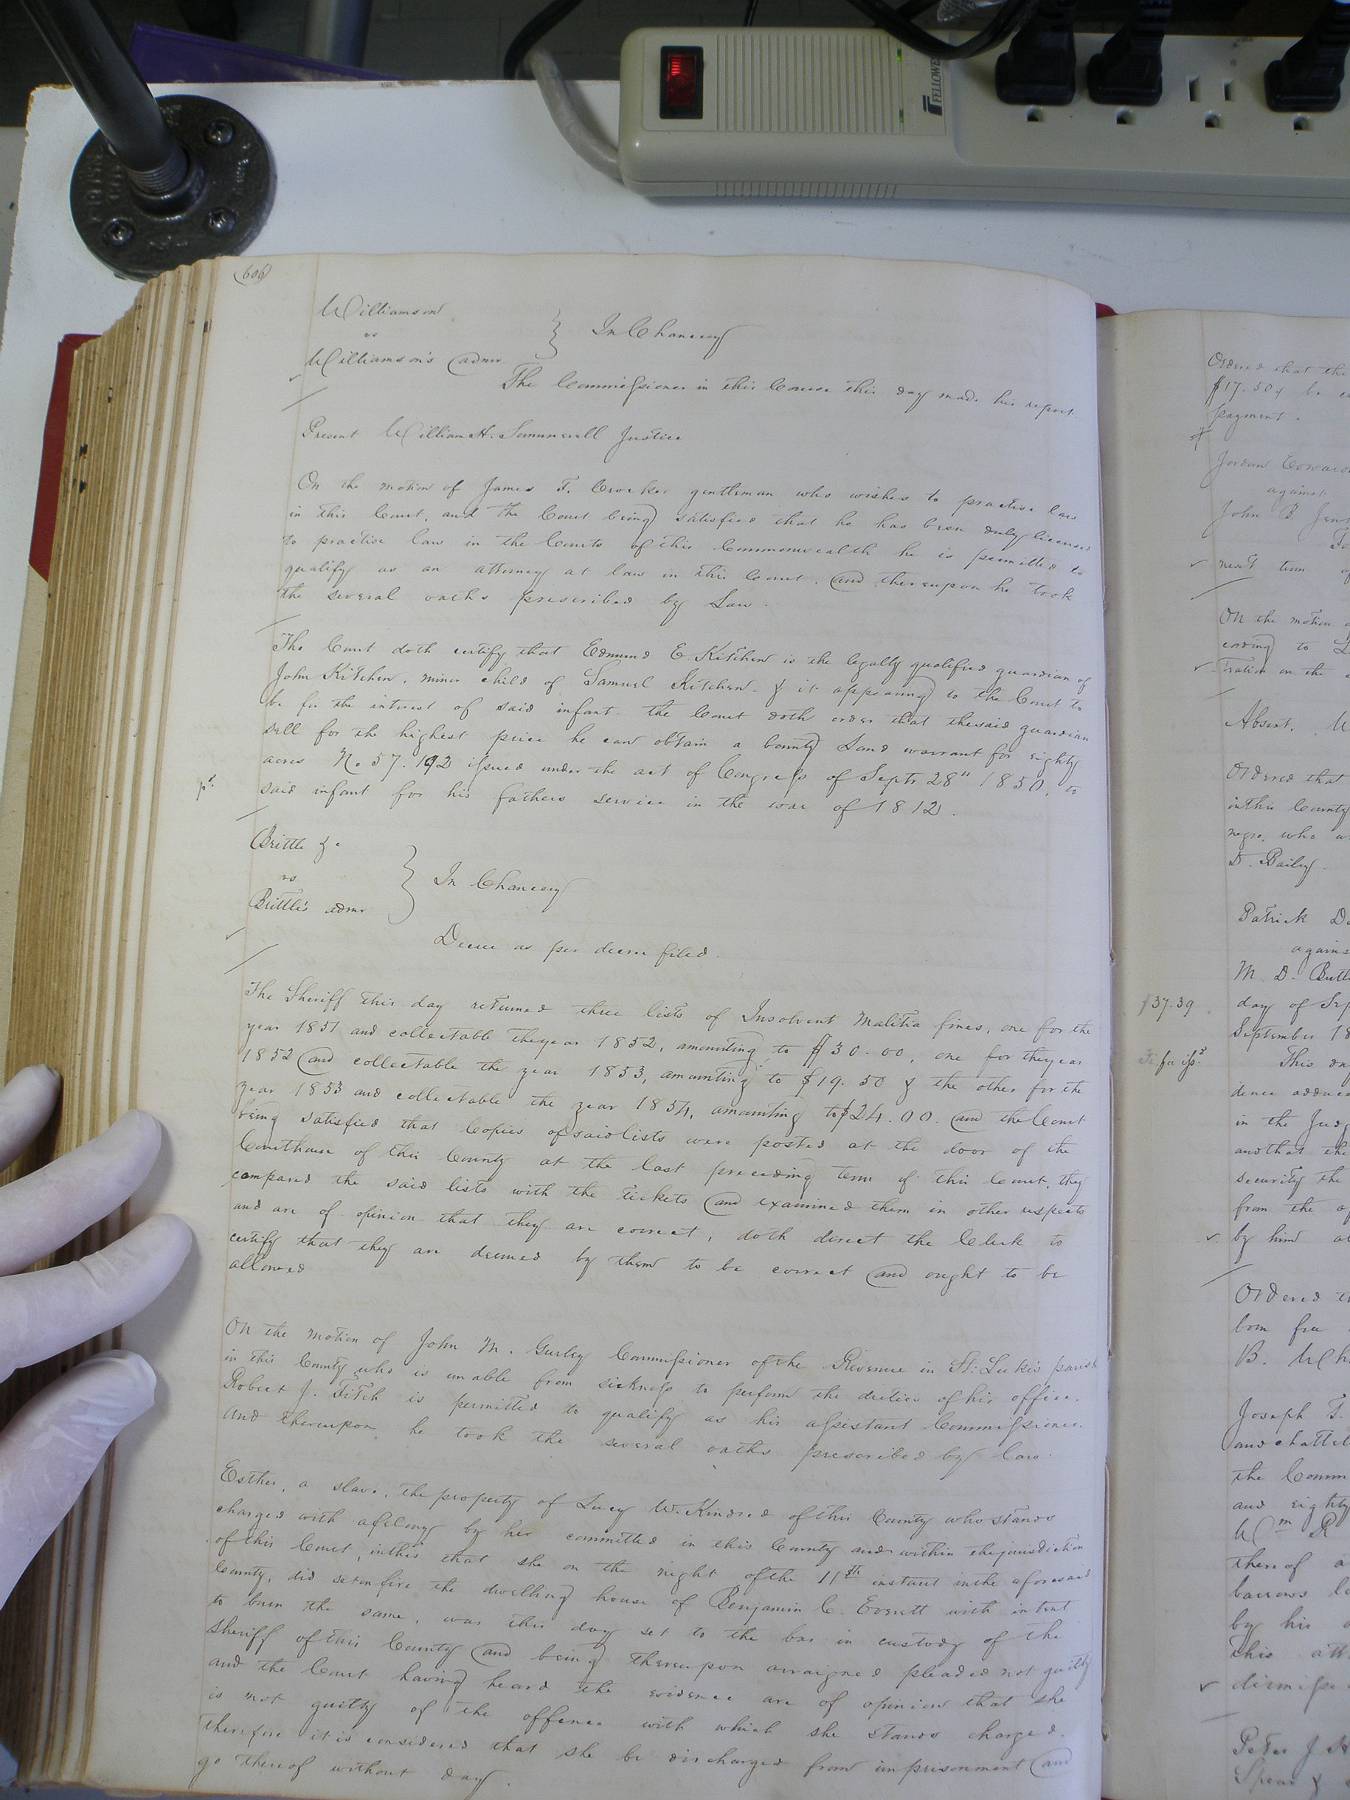 FELLOWES
(606)
Williamson
vs } In Chancery
Williamson's admr
The Commissioner in this Cause this day made his report
Present William H. Summerell Justice
On the motion of James F. Crocker gentleman who wishes to practice law
in this Court, and the Court being satisfied that he has been duly licensed
to practice law in the Courts of this Commonwealth he is permitted to
qualify as an attorney at law in this Court, and thereupon he took
the several oaths prescribed by Law.
The Court doth certify that Edmund E Kitchen is the legally qualified guardian of
John Kitchen, minor child of Samuel Kitchen & it appearing to the Court to
be for the interest of said infant the Court doth order that the said guardian
sell for the highest price he can obtain a bounty Land warrant for eighty
acres No 57.192 issued under the act of Congress of Septr 28" 1850, to
said infant for his fathers service in the war of 1812.
Brittle &c
vs } In Chancery
Brittle's admr
Decree as per decree filed.
The Sheriff this day returned three lists of Insolvent Malitia fines, one for the
year 1851 and collectable the year 1852, amounting to $30.00, one for the year
1852 and collectable the year 1853, amounting to $19.50 & the other for the
year 1853 and collectable the year 1854, amounting to $24.00. and the Court
being satisfied that Copies of said lists were posted at the door of the
Courthouse of this County at the last preceding term of this Court, they
compared the said lists with the tickets and examined them in other respects
and are of opinion that they are correct, doth direct the Clerk to
certify that they are deemed by them to be correct and ought to be
allowed
On the motion of John M. Gurley Commissioner of the Revenue in St. Luke's parish
in this County who is unable from sickness to perform the duties of his office.
Robert J. Fitch is permitted to qualify as his assistant Commissioner.
And thereupon he took the several oaths prescribed by law.
Esther, a slave, the property of Lucy W. Kindred of this County who stands
charged with a felony by her committed in this County and within the jurisdiction
of this Court, in this that she on the night of the 11th instant in the aforesaid
County, did set on fire the dwelling house of Benjamin C. Everett with intent
to burn the same, was this day set to the bar in custody of the
Sheriff of this County and being thereupon arraigned pleaded not guilty
and the Court having heard the evidence are of opinion that she
is not guilty of the offence with which she stands charged.
therefore it is considered that she be discharged from imprisonment and
go thereof without day.
Ordered that the
$17.50 be
payment.
Jordan Edwards
against
John B.
next term of
On the motion
to
on the
Absent.
Ordered that
in this County
negro, who
D. Baily.
Patrick
against
M. D.
$37.39
day of Sep
September 18
This day
dence adduce
in the Judg
and that the
security the
from the
by him
Ordered
born free
B.
Joseph T.
and chattel
the Comm
and eighty
Wm R
thereof
barrows
by his
This att
dismisse
Peter J
Spear &